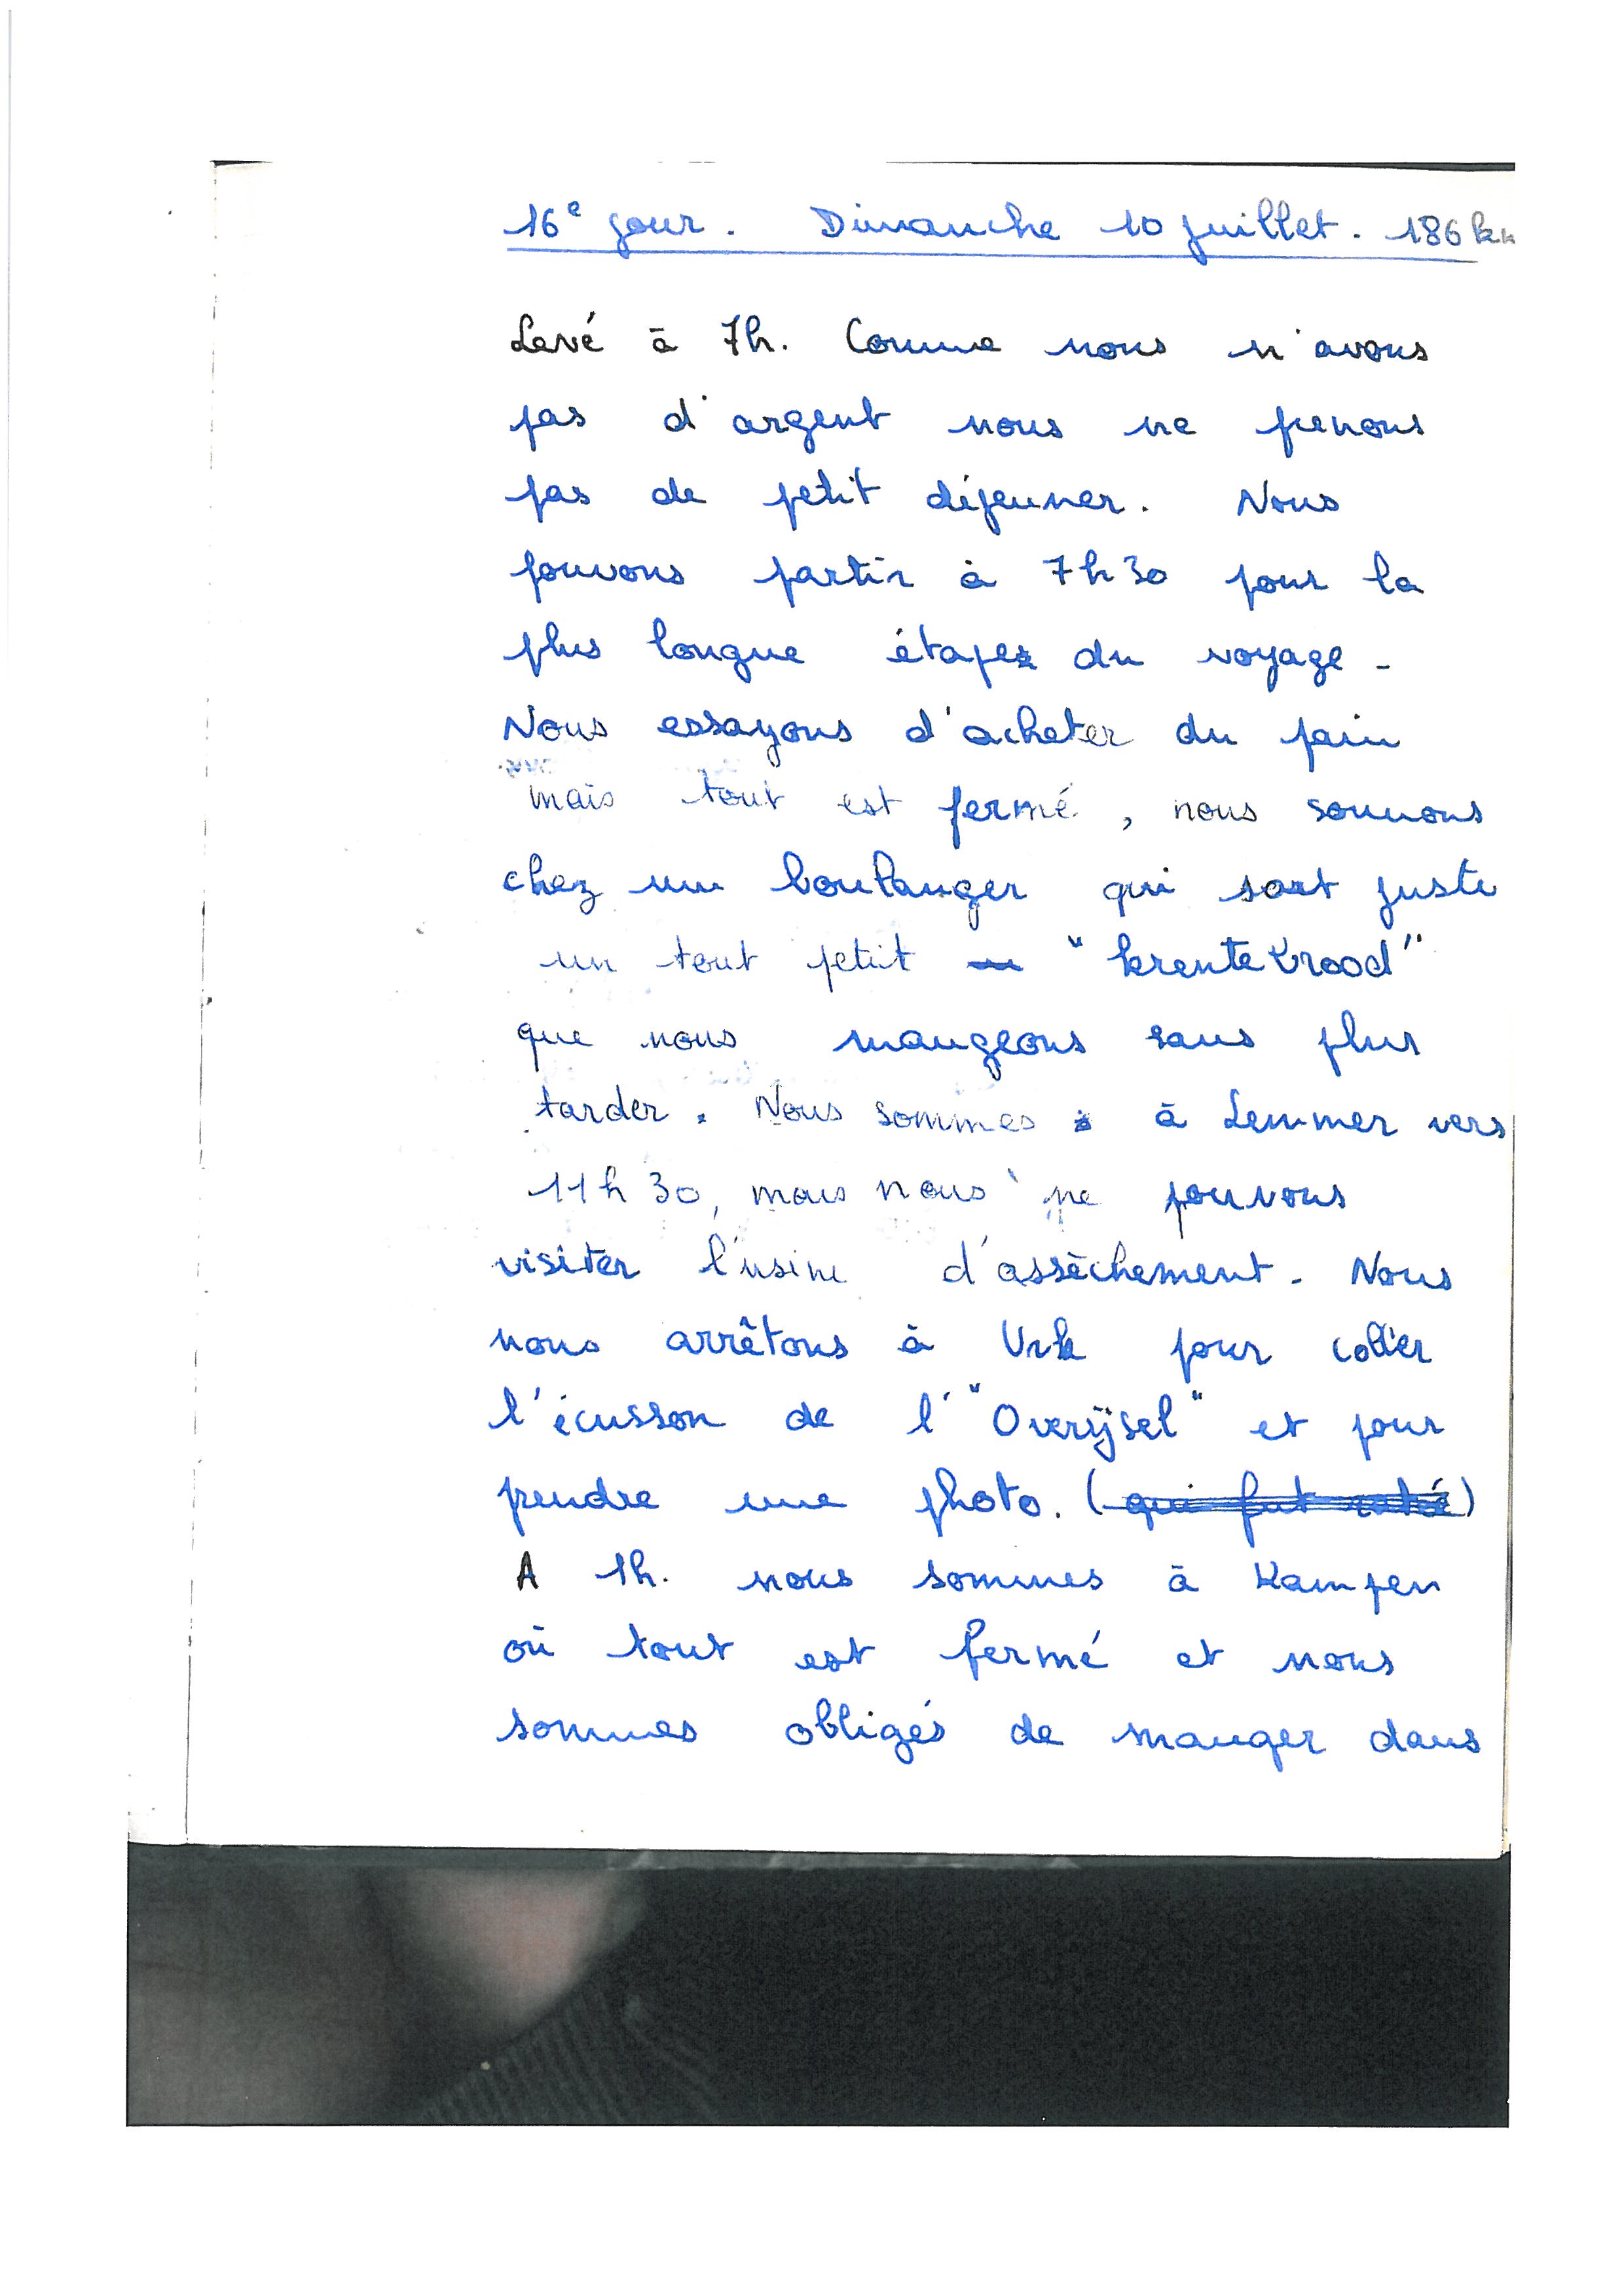 16e jour. Dimanche 10 juillet. 186 km
Levé à 7h. Comme nous n'avons
pas d'argent nous ne prenons
pas de petit déjeuner. Nous
pouvons partir à 7h30 pour la
plus longue étape du voyage.
Nous essayons d'acheter du pain
mais tout est fermé, nous sonnons
chez un boulanger qui sort juste
un tout petit "krentebrood"
que nous mangeons sans plus
tarder. Nous sommes à Lemmer vers
11h30, mais nous ne pouvons
visiter l'usine d'assèchement. Nous
nous arrêtons à Urk pour coller
l'écusson de l'"Overijsel" et pour
prendre une photo. (qui fut ratée)
A 1h. nous sommes à Kampen
où tout est fermé et nous
sommes obligés de manger dans